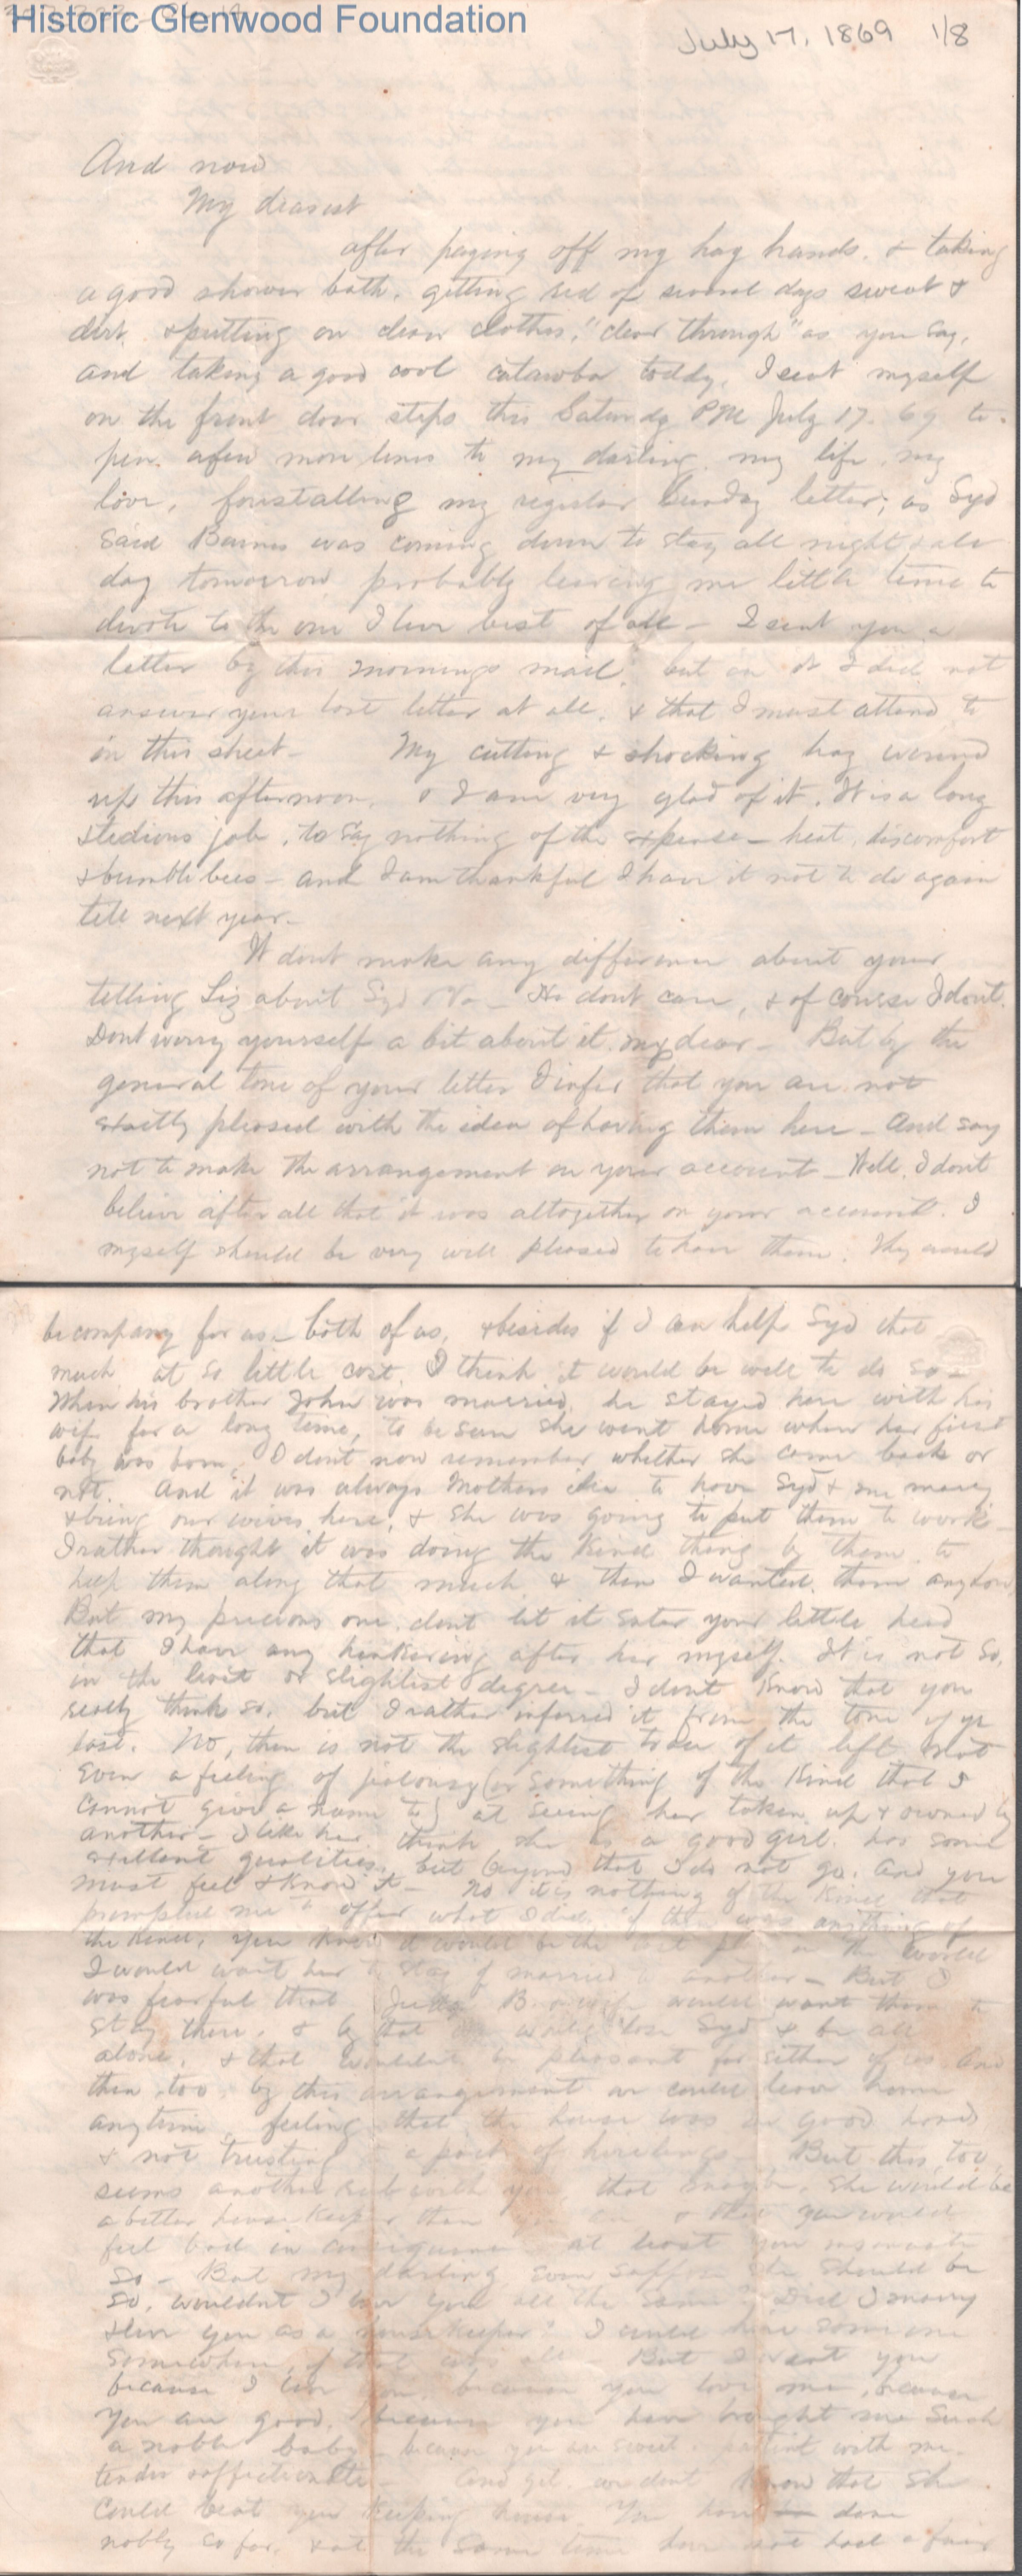 Historic Glenwood Foundation
July 17, 1869 1/8
And now
My dearest
after paying off my hay hands, & taking
a good shower bath, getting red of several days sweat &
dirt, & putting on clean clothes, "clear through" as you say,
and taking a good cool catawba toddy, I seat myself
on the front door steps this Saturdy PM July 17. 69 to
pen a few more lines to my darling, my life, my
love, forestalling my regular Sunday letter, as Syd
said Barnes was coming down to stay all night & all
day tomorrow, probably leaving me little time to
devote to the one I love best of all - I sent you a
letter by this mornings mail, but in it I did not
answer your last letter at all, & that I must attend to
in this sheet - My cutting & shocking hay wound
up this afternoon, & I am very glad of it. It is a long
& tedious job, to say nothing of the expense - heat, discomfort
& bumble bees - and I am thankful I have it not to do again
till next year -
It dont make any difference about your
telling Liz about Syd & Va - He dont care, & of course I dont.
Dont worry yourself a bit about it my dear - But by the
general tone of your letter I infer that you are not
exactly pleased with the idea of having them here - And say
not to make the arrangement on your account - Well, I dont
believe after all that it was altogether on your account. I
myself should be very well pleased to have them. They would
be company for us - both of us, & besides if I can help Syd that
much at so little cost, I think it would be well to do so -
When his brother John was married, he stayed here with his
wife for a long time, to be sure she went home when her first
baby was born, I dont now remember whether she came back or
not. And it was always Mothers idea to have Syd & me marry
& bring our wives here, & she was going to put them to work -
I rather thought it was doing the kind thing by them, to
help them along that much, & then I wanted them anyhow
But my precious one, dont let it enter your little head
that I have any hankering after her myself. It is not so,
in the least or slightest degree - I dont know that you
really think so, but I rather inferred it from the tone of yr
last. No, there is not the slightest trace of it left, not
even a feeling of jealousy (or something of the kind that I
cannot give a name to) at seeing her taken up & owned by
another - I like her, think she is a good girl, has some
excellent qualities, but beyond that I do not go. And you
must feel & know it - No it is nothing of the kind that
prompted me to offer what I did, if there was anything of
the kind, you know it would be the last place in the world
I would want her to stay if married to another - But I
was fearful that Judge would want them to
stay there, & by that we would lose Syd & be all
alone, & that wouldnt be pleasant for either of us. And
then, too, by this arrangement we could leave home
anytime, feeling that the house was in good hands
& not trusting to a pack of hirelings - But this, too,
seems another rub with you, that maybe, she would be
a better house keeper than you are & that you would
feel bad in consequence at least you
so - But my darling even suppose she should be
so, wouldnt I love you all the same? Did I marry
& love you as a housekeeper? I could hire some one
somewhere, if that was all - But I want you
because I love you, because you love me, because
you are good, because you have brought me such
a noble baby, because you are sweet & patient with me,
tender & affectionate - And yet we dont know that she
could beat you keeping house. You have done
nobly so far, & at the same time have not had a fair